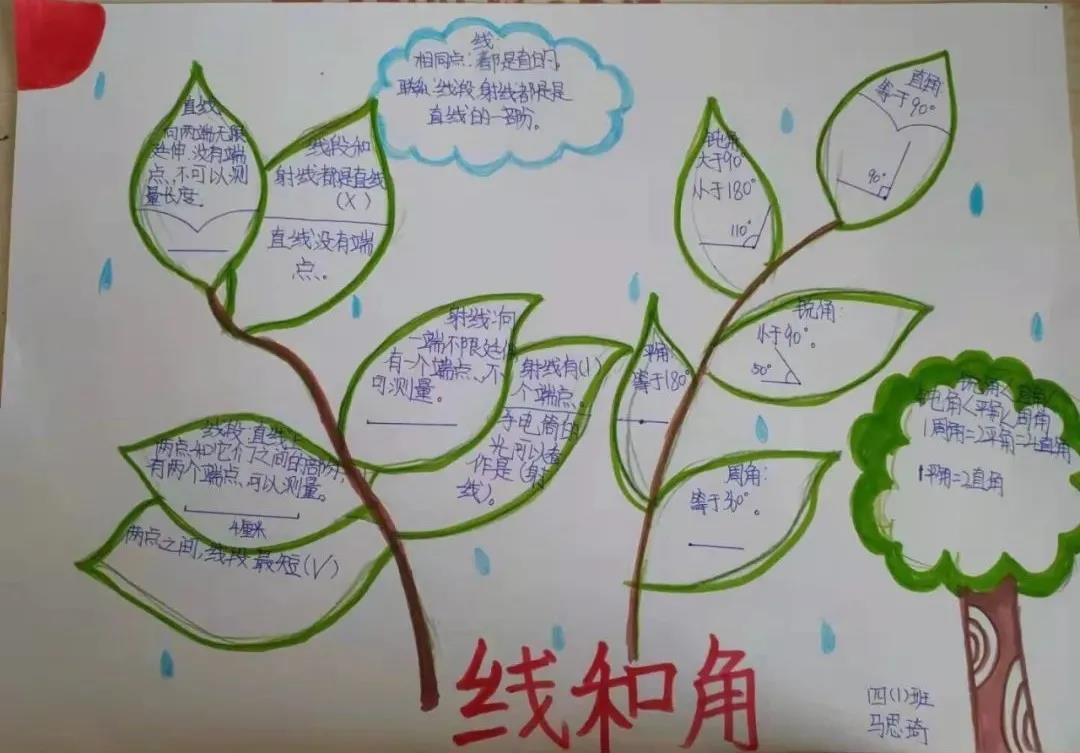 线:
相同点:都是直的,
联系:线段、射线都是是
直线的一部份。
直线:
向两端无限
延伸.没有端
点、不可以测
量长度。
线段和
射线都是直线
(X)
直线没有端
点。
射线:向
一端不限延伸
有一个端点、不
可测量。
射线有(1)
个端点。
手电筒的
光可以看
作是(射
线)。
线段:直线上
两点和它们之间的部份,
有两个端点、可以测量。
4厘米
两点之间,线段最短(√)
钝角:
大于90°
小于180°
110°
直角:
等于90°
90°
锐角:
小于90°。
50°
平角:
等于180°
周角:
等于
。
锐角<直角<
钝角<平角<周角
1周角=2平角=4直角
1平角=2直角
线和角
四(1)班
马思琦